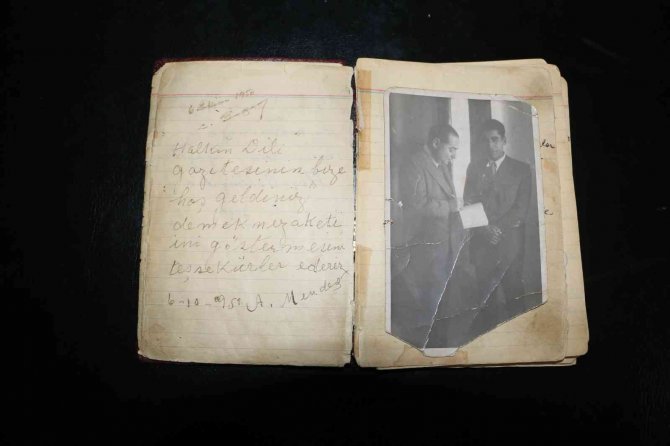 6 Ekim 1950
Halkın Dili
gazetesinin bize
"hoş geldiniz"
demek nezaketi
ini göstermesine
teşsekürler ederez
6-10-950 A. Mendez